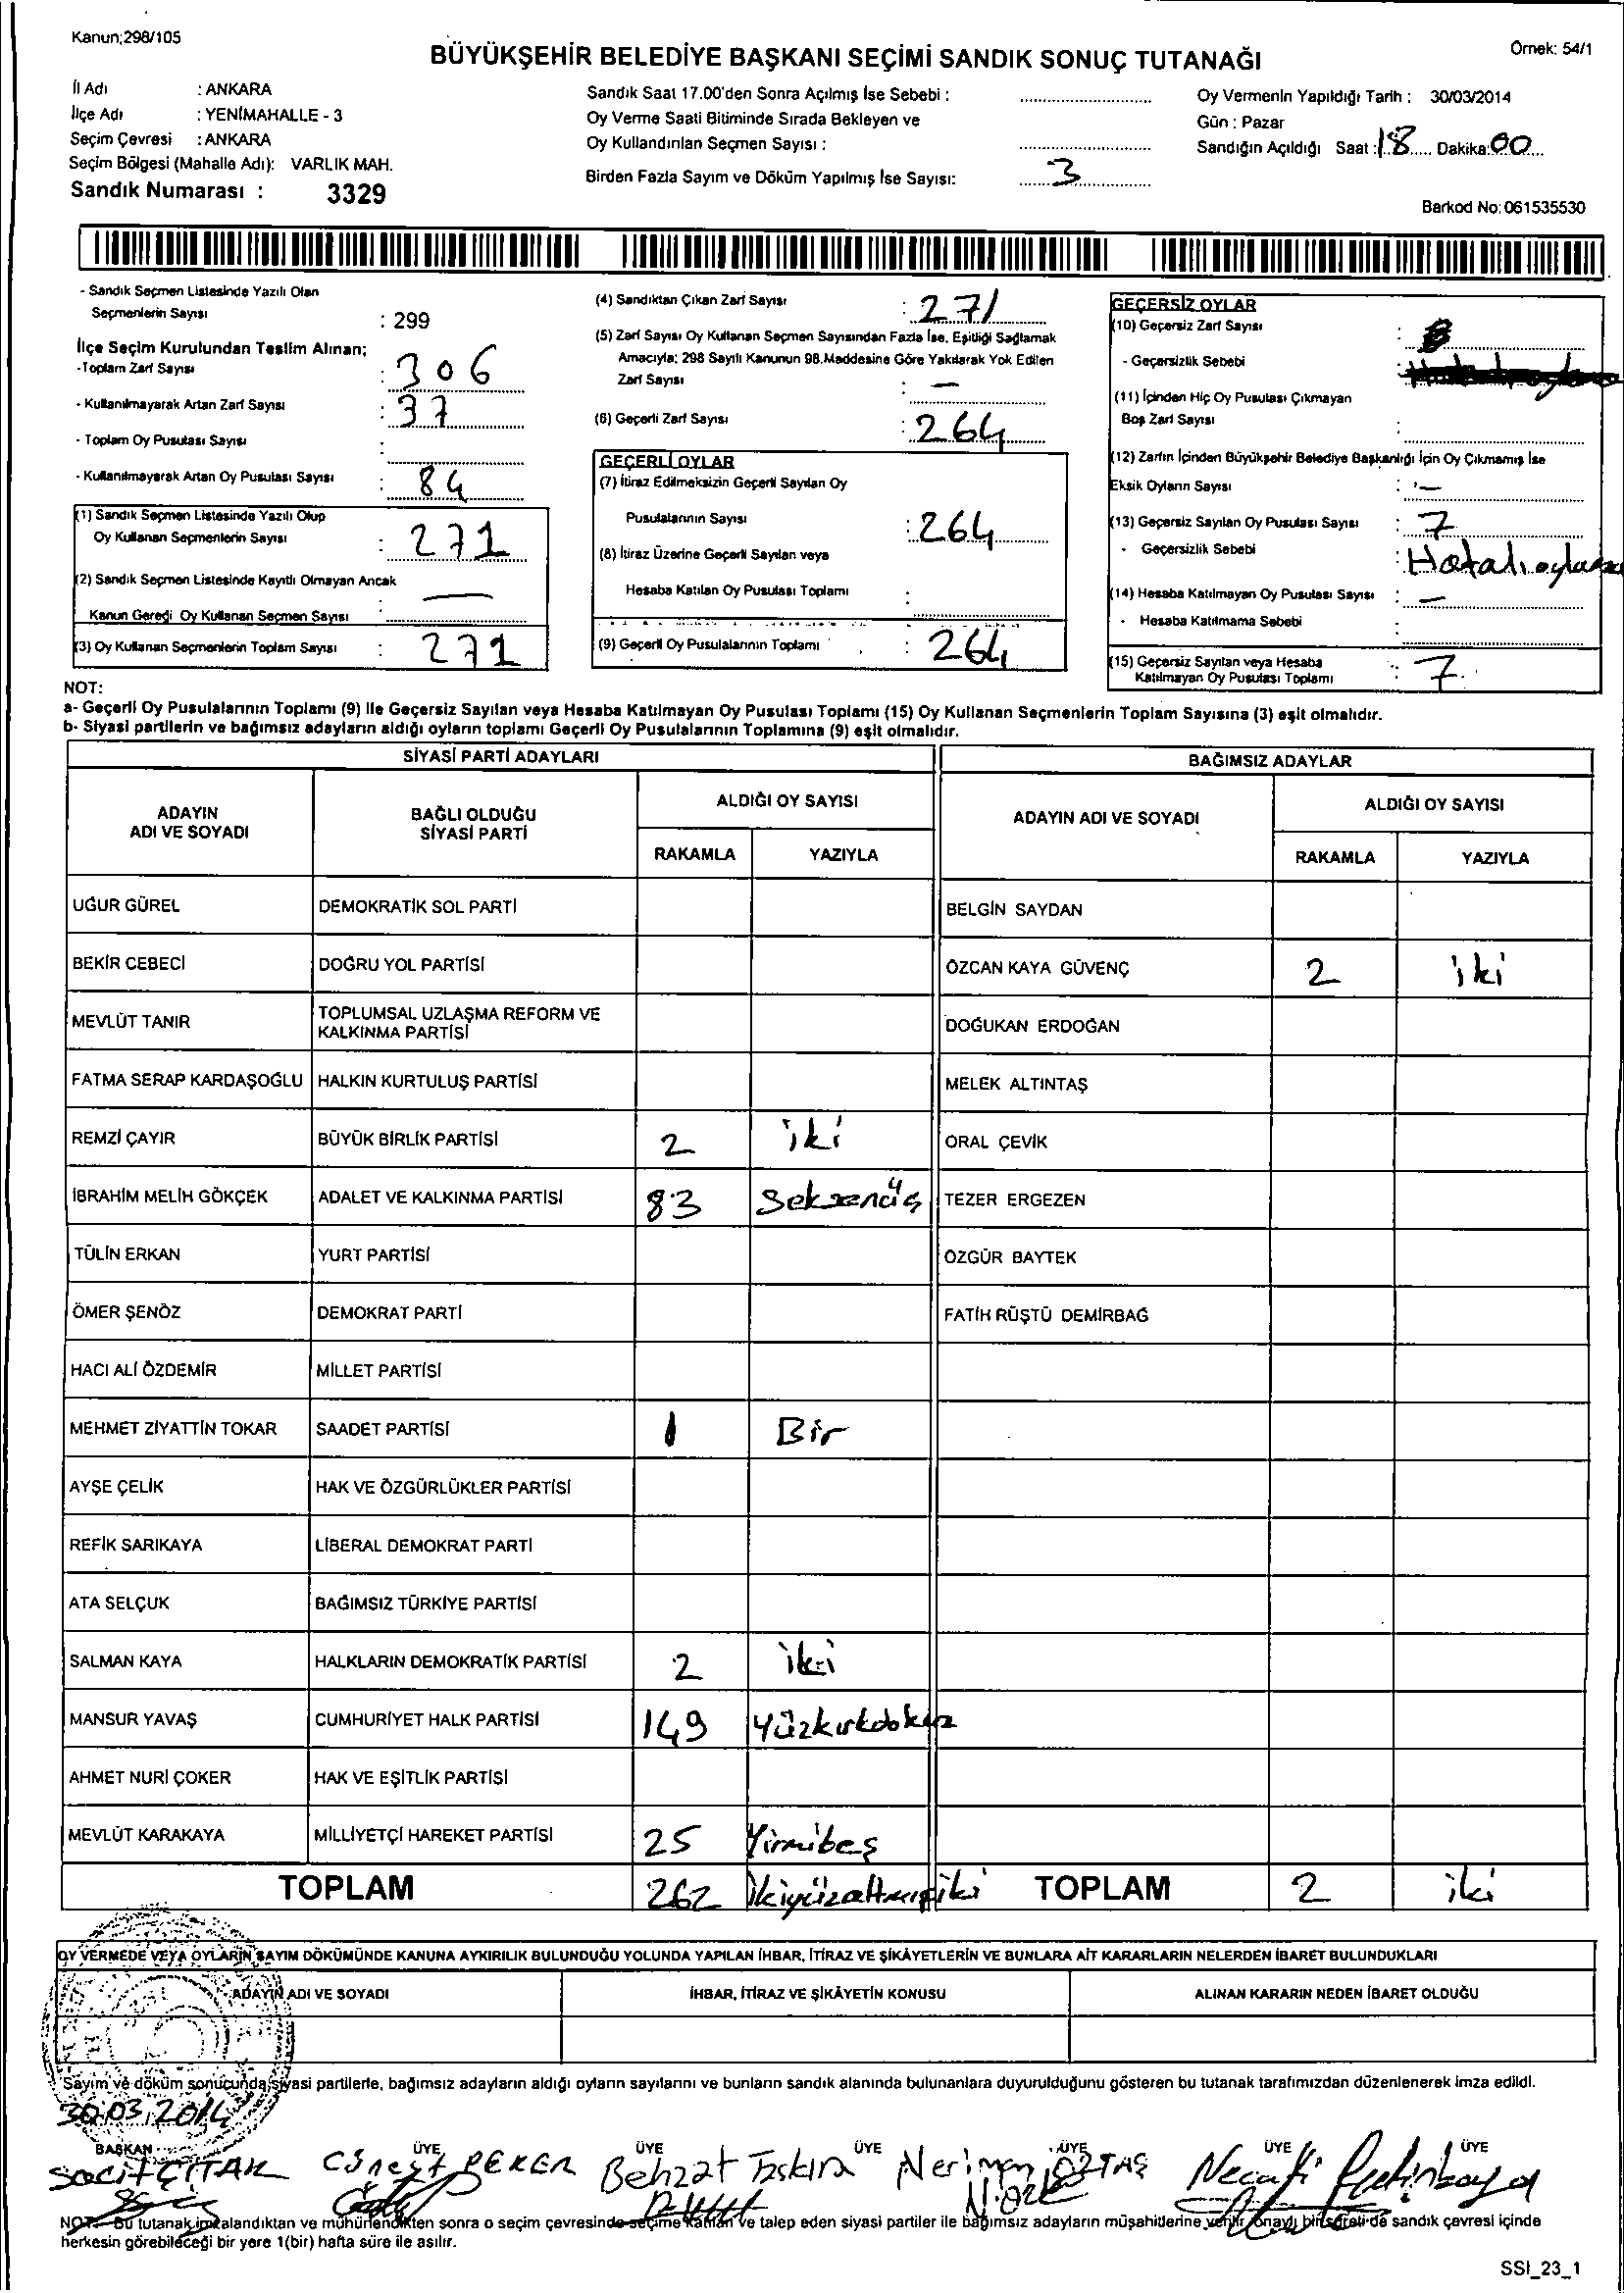 Kanun;298/105
Örnek: 54/1
BÜYÜKŞEHİR BELEDİYE BAŞKANI SEÇİMİ SANDIK SONUÇ TUTANAĞI
İl Adı : ANKARA
İlçe Adı : YENİMAHALLE - 3
Seçim Çevresi : ANKARA
Seçim Bölgesi (Mahalle Adı): VARLIK MAH.
Sandık Numarası : 3329
Sandık Saat 17.00'den Sonra Açılmış İse Sebebi :
Oy Verme Saati Bitiminde Sırada Bekleyen ve
Oy Kullandırılan Seçmen Sayısı :
Birden Fazla Sayım ve Döküm Yapılmış İse Sayısı: 3
Oy Vermenin Yapıldığı Tarih : 30/03/2014
Gün : Pazar
Sandığın Açıldığı Saat : 18 Dakika: 00
Barkod No: 061535530
- Sandık Seçmen Listesinde Yazılı Olan
Seçmenlerin Sayısı : 299
İlçe Seçim Kurulundan Teslim Alınan;
-Toplam Zarf Sayısı : 306
- Kullanılmayarak Artan Zarf Sayısı : 37
- Toplam Oy Pusulası Sayısı :
- Kullanılmayarak Artan Oy Pusulası Sayısı : 84
(1) Sandık Seçmen Listesinde Yazılı Olup
Oy Kullanan Seçmenlerin Sayısı : 271
(2) Sandık Seçmen Listesinde Kayıtlı Olmayan Ancak
Kanun Geredi Oy Kullanan Seçmen Sayısı : —
(3) Oy Kullanan Seçmenlerin Toplam Sayısı : 271
(4) Sandıktan Çıkan Zarf Sayısı : 271
(5) Zarf Sayısı Oy Kullanan Seçmen Sayısından Fazla İse, Eşitliği Sağlamak
Amacıyla; 298 Sayılı Kanunun 98.Maddesine Göre Yakılarak Yok Edilen
Zarf Sayısı : —
(6) Geçerli Zarf Sayısı : 264
GEÇERLİ OYLAR
(7) İtiraz Edilmeksizin Geçerli Sayılan Oy
Pusulalarının Sayısı : 264
(8) İtiraz Üzerine Geçerli Sayılan veya
Hesaba Katılan Oy Pusulası Toplamı :
(9) Geçerli Oy Pusulalarının Toplamı : 264
GEÇERSİZ OYLAR
(10) Geçersiz Zarf Sayısı :
- Geçersizlik Sebebi :
(11) İçinden Hiç Oy Pusulası Çıkmayan
Boş Zarf Sayısı :
(12) Zarfın İçinden Büyükşehir Belediye Başkanlığı İçin Oy Çıkmamış İse
Eksik Oyların Sayısı : —
(13) Geçersiz Sayılan Oy Pusulası Sayısı : 7
- Geçersizlik Sebebi :
(14) Hesaba Katılmayan Oy Pusulası Sayısı : —
- Hesaba Katılmama Sebebi :
(15) Geçersiz Sayılan veya Hesaba
Katılmayan Oy Pusulası Toplamı : 7
NOT:
a- Geçerli Oy Pusulalarının Toplamı (9) İle Geçersiz Sayılan veya Hesaba Katılmayan Oy Pusulası Toplamı (15) Oy Kullanan Seçmenlerin Toplam Sayısına (3) eşit olmalıdır.
b- Siyasi partilerin ve bağımsız adayların aldığı oyların toplamı Geçerli Oy Pusulalarının Toplamına (9) eşit olmalıdır.
SİYASİ PARTİ ADAYLARI
ADAYIN
ADI VE SOYADI
BAĞLI OLDUĞU
SİYASİ PARTİ
ALDIĞI OY SAYISI
RAKAMLA YAZIYLA
UĞUR GÜREL DEMOKRATİK SOL PARTİ
BEKİR CEBECİ DOĞRU YOL PARTİSİ
MEVLÜT TANIR TOPLUMSAL UZLAŞMA REFORM VE
KALKINMA PARTİSİ
FATMA SERAP KARDAŞOĞLU HALKIN KURTULUŞ PARTİSİ
REMZİ ÇAYIR BÜYÜK BİRLİK PARTİSİ 2 iki
İBRAHİM MELİH GÖKÇEK ADALET VE KALKINMA PARTİSİ 83 Seksenüç
TÜLİN ERKAN YURT PARTİSİ
ÖMER ŞENÖZ DEMOKRAT PARTİ
HACI ALİ ÖZDEMİR MİLLET PARTİSİ
MEHMET ZİYATTİN TOKAR SAADET PARTİSİ 1 Bir
AYŞE ÇELİK HAK VE ÖZGÜRLÜKLER PARTİSİ
REFİK SARIKAYA LİBERAL DEMOKRAT PARTİ
ATA SELÇUK BAĞIMSIZ TÜRKİYE PARTİSİ
SALMAN KAYA HALKLARIN DEMOKRATİK PARTİSİ 2 iki
MANSUR YAVAŞ CUMHURİYET HALK PARTİSİ 149 Yüzkırkdokuz
AHMET NURİ ÇOKER HAK VE EŞİTLİK PARTİSİ
MEVLÜT KARAKAYA MİLLİYETÇİ HAREKET PARTİSİ 25 Yirmibeş
TOPLAM 262 ikiyüzaltmışiki
BAĞIMSIZ ADAYLAR
ADAYIN ADI VE SOYADI
ALDIĞI OY SAYISI
RAKAMLA YAZIYLA
BELGİN SAYDAN
ÖZCAN KAYA GÜVENÇ 2 iki
DOĞUKAN ERDOĞAN
MELEK ALTINTAŞ
ORAL ÇEVİK
TEZER ERGEZEN
ÖZGÜR BAYTEK
FATİH RÜŞTÜ DEMİRBAĞ
TOPLAM 2 iki
OY VERMEDE VEYA OYLARIN SAYIM DÖKÜMÜNDE KANUNA AYKIRILIK BULUNDUĞU YOLUNDA YAPILAN İHBAR, İTİRAZ VE ŞİKÂYETLERİN VE BUNLARA AİT KARARLARIN NELERDEN İBARET BULUNDUKLARI
ADAYIN ADI VE SOYADI İHBAR, İTİRAZ VE ŞİKÂYETİN KONUSU ALINAN KARARIN NEDEN İBARET OLDUĞU
Sayım ve döküm sonucunda siyasi partilerle, bağımsız adayların aldığı oyların sayılarını ve bunların sandık alanında bulunanlara duyurulduğunu gösteren bu tutanak tarafımızdan düzenlenerek imza edildi.
30.03.2014
BAŞKAN ÜYE ÜYE ÜYE ÜYE ÜYE ÜYE
Sacit ÇITAK Cüneyt PEKER Behzat Taşkın Neriman ÖZTAŞ Necati
NOT: Bu tutanak imzalandıktan ve mühürlendikten sonra o seçim çevresinde seçime katılan ve talep eden siyasi partiler ile bağımsız adayların müşahitlerine verilir onaylı bir sureti de sandık çevresi içinde
herkesin görebileceği bir yere 1(bir) hafta süre ile asılır.
SSI_23_1